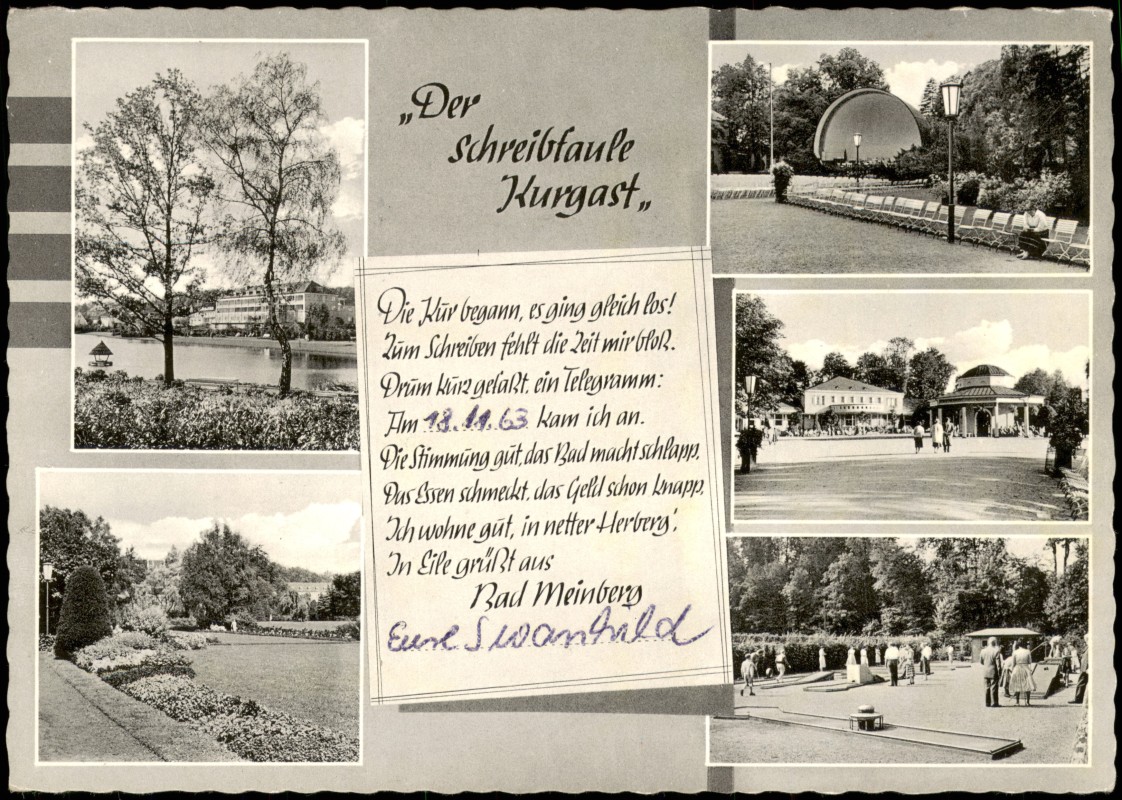 „Der
schreibfaule
Kurgast„
Die Kur begann, es ging gleich los!
Zum Schreiben fehlt die Zeit mir bloß.
Drum kurz gefaßt, ein Telegramm:
Am 18.11.63 kam ich an.
Die Stimmung gut, das Bad macht schlapp,
Das Essen schmeckt, das Geld schon knapp,
Ich wohne gut, in netter Herberg'.
In Eile grüßt aus
Bad Meinberg
Eure Swanhild